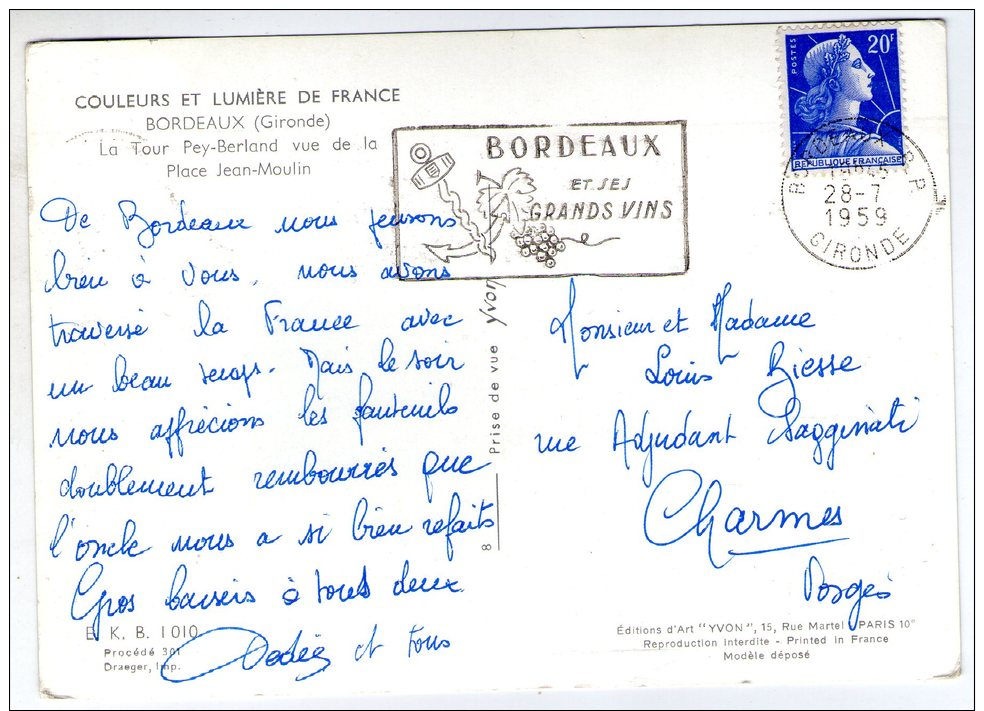 COULEURS ET LUMIÈRE DE FRANCE
BORDEAUX (Gironde)
La Tour Pey-Berland vue de la
Place Jean-Moulin
De Bordeaux nous pensons
bien à vous, nous avons
traversé la France avec
un beau temps. Mais le soir
nous apprécions les fauteuils
doublement rembourrés que
l'oncle nous a si bien refaits
Gros baisers à tous deux
Dedée et tous
E. K. B. 1010
Procédé 301
Draeger, Imp.
8 Prise de vue Yvon
BORDEAUX
ET SES
GRANDS VINS
POSTES
20F
REPUBLIQUE FRANÇAISE
BORDEAUX R.P.
28-7
1959
GIRONDE
Monsieur et Madame
Louis Biesse
rue Adjudant
Charmes
Vosges
Éditions d'Art "YVON", 15, Rue Martel - PARIS 10e
Reproduction Interdite - Printed in France
Modèle déposé